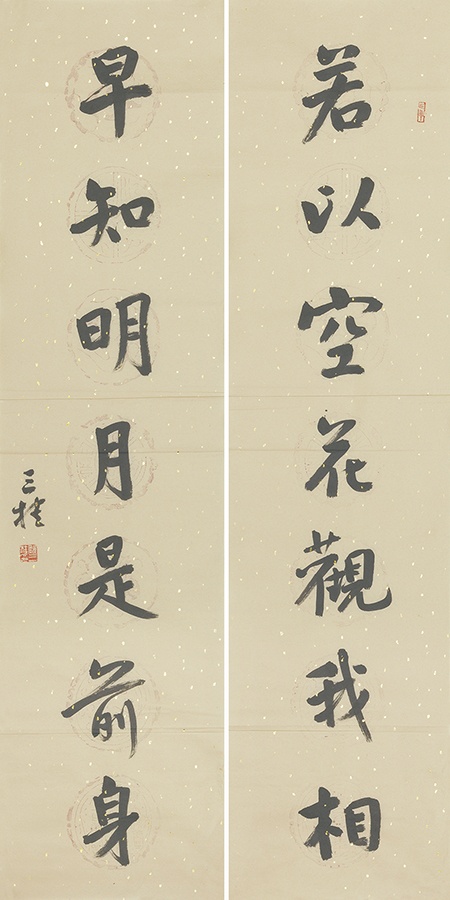 若以空花觀我相
早知明月是前身
三桂